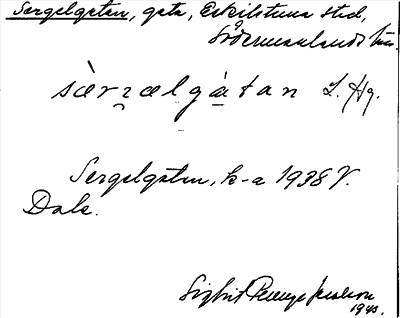 Sergelgatan, gata, Eskilstuna stad,
Södermanlands län.
sæ̀rʒælgàtan L. Hg.
Sergelgatan, k-a 1938 V.
Dale.
Sigbrit Plenge Jacobson
1940.